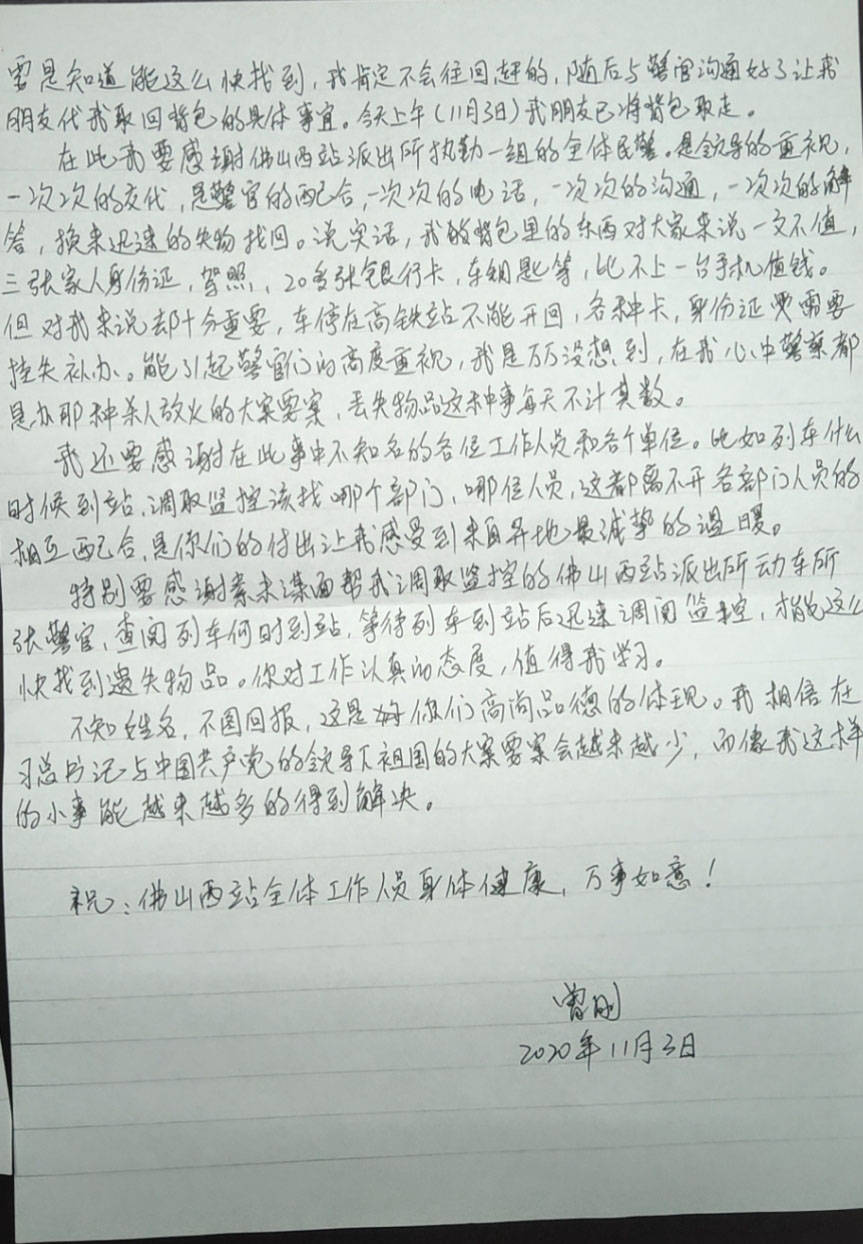 要是知道能这么快找到，我肯定不会往回赶的，随后与警官沟通好了让我
朋友代我取回背包的具体事宜。今天上午（11月3日）我朋友已将背包取走。
在此我要感谢佛山西站派出所执勤一组的全体民警。是领导的重视，
一次次的交代，是警官的配合，一次次的电话，一次次的沟通，一次次的解
答，换来迅速的失物找回。说实话，我的背包里的东西对大家来说一文不值，
三张家人身份证，驾照，20多张银行卡，车钥匙等，比不上一台手机值钱。
但对我来说却十分重要，车停在高铁站不能开回，各种卡，身份证更需要
挂失补办。能引起警官们的高度重视，我是万万没想到，在我心中警察都
是办那种杀人放火的大案要案，丢失物品这种事每天不计其数。
我还要感谢在此事中不知名的各位工作人员和各个单位。比如列车什么
时候到站，调取监控该找哪个部门，哪位人员，这都离不开各部门人员的
相互配合，是你们的付出让我感受到来自异地最诚挚的温暖。
特别要感谢素未谋面帮我调取监控的佛山西站派出所动车所
张警官，查阅列车何时到站，等待列车到站后迅速调阅监控，才能这么
快找到遗失物品。你对工作认真的态度，值得我学习。
不知姓名，不图回报，这是你们高尚品德的体现。我相信在
习总书记与中国共产党的领导下祖国的大案要案会越来越少，而像我这样
的小事能越来越多的得到解决。
祝：佛山西站全体工作人员身体健康，万事如意！
曾刚
2020年11月3日